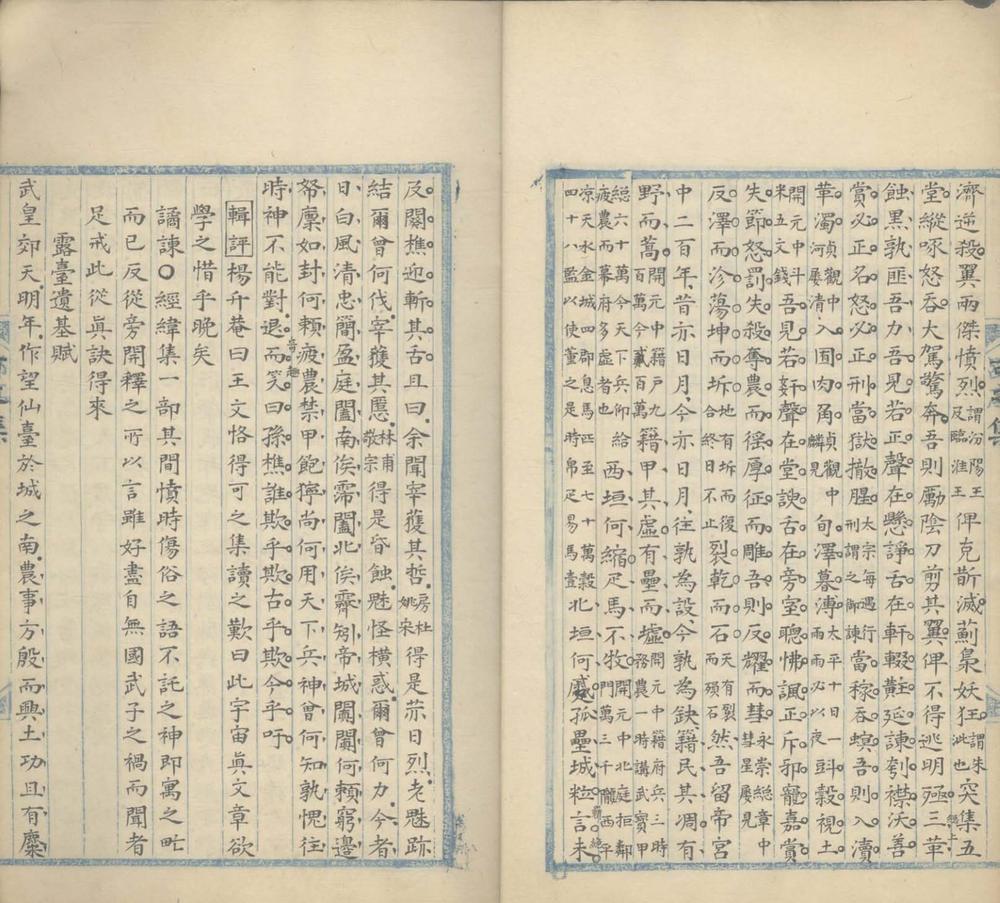 濟逆殺翼兩傑憤烈謂汾陽王及臨淮王俾克斮滅薊梟妖狂謂朱泚也突集五
堂縱啄怒吞大駕驚奔吾則勵陰刀剪其翼俾不得逃明殛三革
蝕黑孰匪吾力吾見若正聲在懸諍舌在軒輟黈延諫刳襟沃善
賞必正名怒必正刑當獄撤腥太宗每遇行刑謂之御諫當稼吞螟吾則入瀆
華濁貞觀中河屢清入囿肉角貞觀中麟見旬澤暮溥太平十日一雨雨必以夜㪷穀視土
開元中斗米五文錢吾見若奸聲在堂諛舌在旁窒聰怫諷正斥邪寵嘉賞
失節怒罰失殺奪農而徭厚征而雕吾則反耀而彗永崇總章中彗星屢見
反澤而沴蕩坤而坼地有坼而復合終日不止裂乾而石天有裂而殞石然吾留帝宮
中二百年昔亦日月今亦日月往孰為設今孰為缺籍民其凋有
野而蒿開元中籍戶九百萬今貳百萬籍甲其虛有壘而墟開元中籍府兵三時務農一時講武寶甲
總六十萬今天下兵仰給疲農而幕府多虛者也西垣何縮疋馬不牧開元中北庭拒鄰門萬三千隴西平
凉天水金城四郡息馬匹至七十萬穀四十八監以使董之是時帛疋易馬壹北垣何蹙孤壘城粒言未
及闋樵迎斬其舌且曰余聞宰獲其哲房杜姚宋得是茶日烈老魅跡
結爾曾何伐宰獲其慝林甫敬宗得是昏蝕魅怪橫惑爾曾何力今者
日白風清忠簡盈庭闔南俟霈闔北俟霽矧帝城闐闐何賴窮邊
帑廩如封何賴疲農禁甲飽獰尚何用天下兵神曾何知孰愧往
時神不能對退而笑曰孫樵誰欺乎欺古乎欺今乎吁
輯評楊升菴曰王文恪得可之集讀之歎曰此宇宙眞文章欲
學之惜乎晚矣
譎諫〇經緯集一部其間憤時傷俗之語不託之神即寓之甿
而已反從旁開釋之所以言雖好盡自無國武子之禍而聞者
足戒此從眞訣得來
露臺遺基賦
武皇郊天明年作望仙臺於城之南農事方殷而興土功且有麋